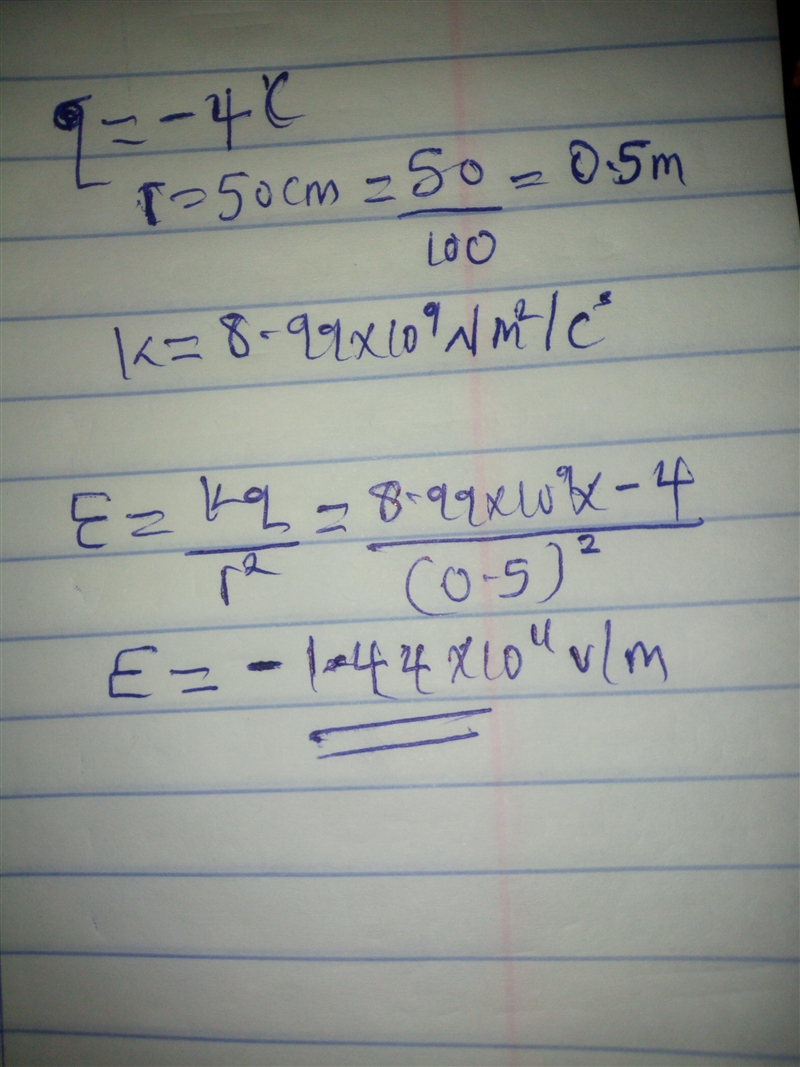 q = -4C
r = 50cm = 50/100 = 0.5m
k = 8.99x10⁹Nm²/C²
E = kq/r² = 8.99x10⁹x-4/(0.5)²
E = -1.44x10¹¹ v/m